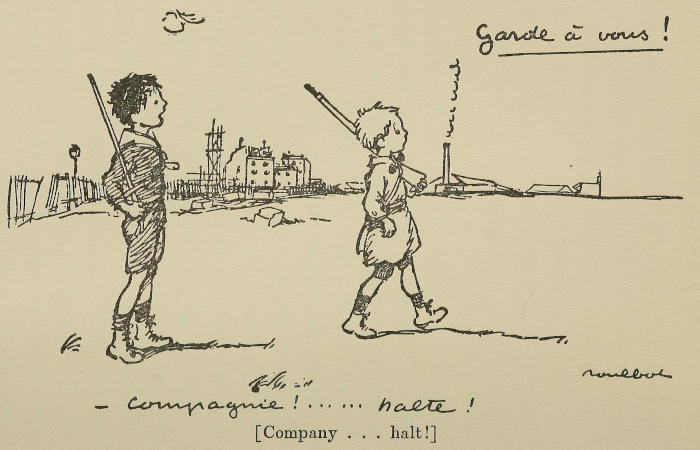 Garde à vous !
Poulbot
- Compagnie !...... halte !
[Company . . . halt!]